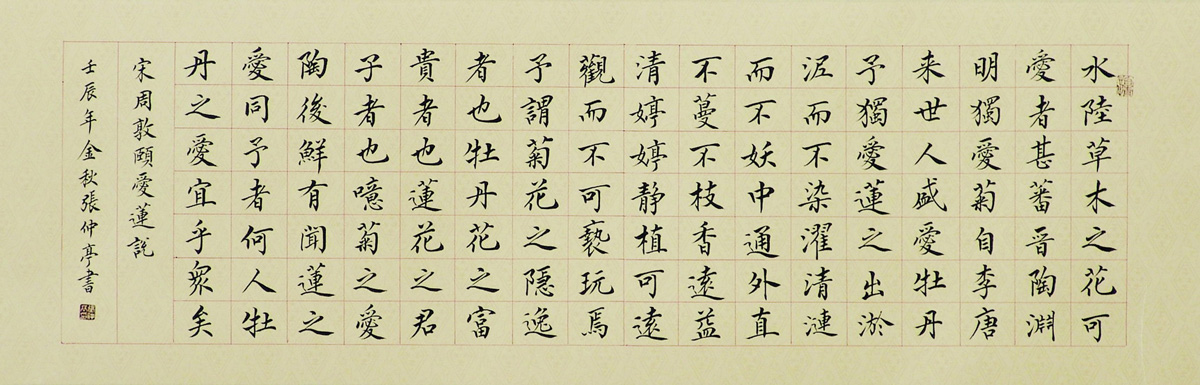 水陸草木之花可
愛者甚蕃晉陶淵
明獨愛菊自李唐
来世人盛愛牡丹
予獨愛蓮之出淤
泥而不染濯清漣
而不妖中通外直
不蔓不枝香遠益
清婷婷静植可遠
觀而不可褻玩焉
予謂菊花之隱逸
者也牡丹花之富
貴者也蓮花之君
子者也噫菊之愛
陶後鮮有聞蓮之
愛同予者何人牡
丹之愛宜乎衆矣
宋周敦頤愛蓮説
壬辰年金秋張仲亭書